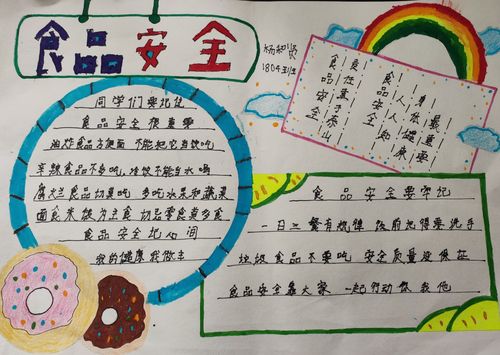 食品安全
1804班
同学们要记住
食品安全很重要
油炸食品方便面 不能把它当饭吃
辛辣食品不多吃 冷饮不能当水喝
腐烂食品切莫吃 多吃水果和蔬菜
面食米饭为主食 切忌零食素多食
食品安全记心间
我的健康我做主
身体健康最重要
食品人人知
食品安全
责任重于泰山
食品安全要牢记
一日三餐有规律 饭前记得要洗手
垃圾食品不要吃 安全质量没保证
食品安全靠大家 一起行动你我他